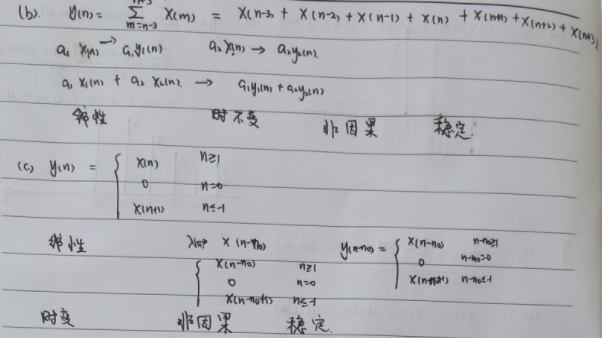 (b). y(n) = Σ_{m=n-3}^{n+3} x(m) = x(n-3) + x(n-2) + x(n-1) + x(n) + x(n+1) + x(n+2) + x(n+3)
a₁ x₁(n) → a₁y₁(n) a₂ x₂(n) → a₂y₂(n).
a₁ x₁(n) + a₂ x₂(n) → a₁y₁(n) + a₂y₂(n)
线性 时不变 非因果 稳定.
(c) y(n) = { x(n) n≥1
0 n=0
x(n+1) n≤-1
线性 x(n-n₀) y(n-n₀) = { x(n-n₀) n-n₀≥1
{ x(n-n₀) n≥1 0 n-n₀=0
0 n=0 x(n-n₀+1) n-n₀≤-1
x(n-n₀+1) n≤-1
时变 非因果 稳定.